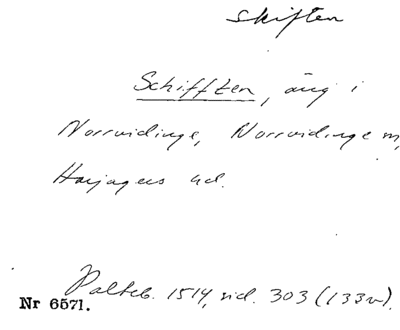 skiften
Schifften, äng i
Norrvidinge, Norrvidinge sn,
Harjagers hd.
Palteb. 1514, sid. 303 (133v).
Nr 6571.